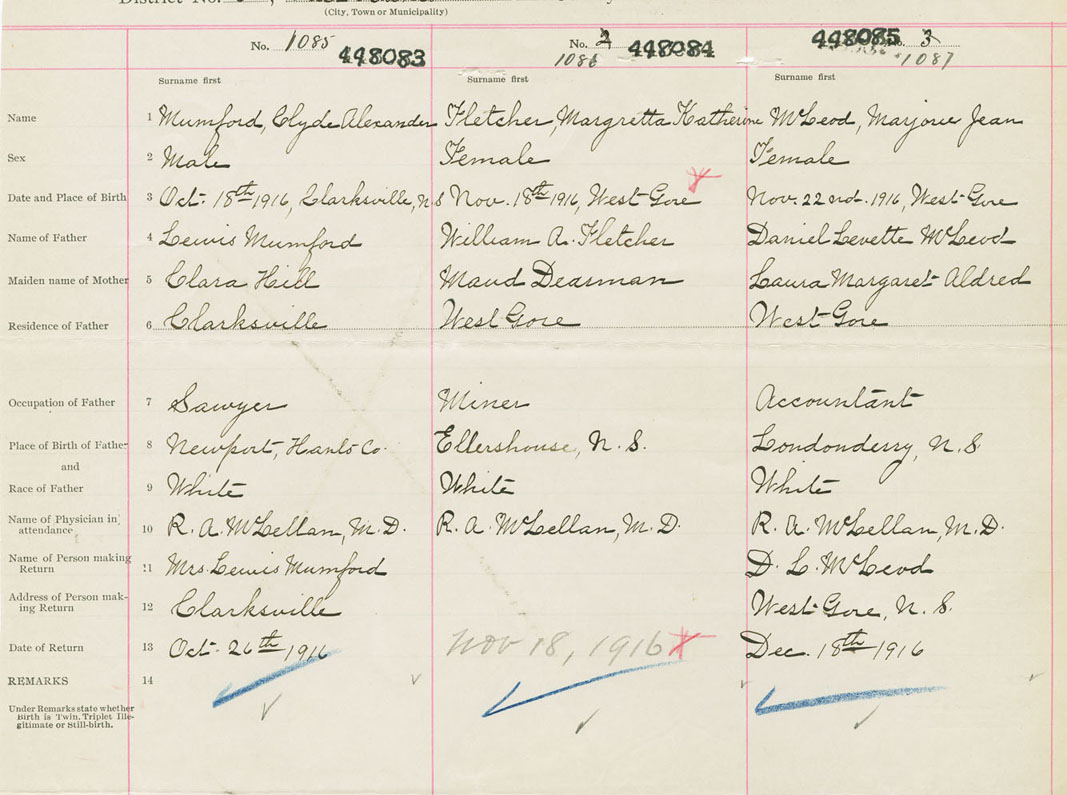 District No.
(City, Town or Municipality)
No. 1085 448083 No. 2 1086 448084 448085 No. 3 1087
Surname first Surname first Surname first
Name 1 Mumford, Clyde Alexander Fletcher, Margretta Katherine McLeod, Marjorie Jean
Sex 2 Male Female Female
Date and Place of Birth 3 Oct. 18th 1916, Clarksville, N.S Nov. 18th 1916, West Gore Nov. 22nd. 1916, West Gore
Name of Father 4 Lewis Mumford William A. Fletcher Daniel Levette McLeod
Maiden name of Mother 5 Clara Hill Maud Dearman Laura Margaret Aldred
Residence of Father 6 Clarksville West Gore West Gore
Occupation of Father 7 Sawyer Miner Accountant
Place of Birth of Father 8 Newport, Hants Co. Ellershouse, N.S. Londonderry, N.S
and
Race of Father 9 White White White
Name of Physician in attendance 10 R. A. McLellan, M.D. R. A. McLellan, M.D. R. A. McLellan, M.D.
Name of Person making Return 11 Mrs. Lewis Mumford D. L. McLeod
Address of Person making Return 12 Clarksville West Gore, N.S.
Date of Return 13 Oct. 26th 1916 Nov 18, 1916 Dec. 18th 1916
REMARKS 14
Under Remarks state whether
Birth is Twin, Triplet Ille-
gitimate or Still-birth.